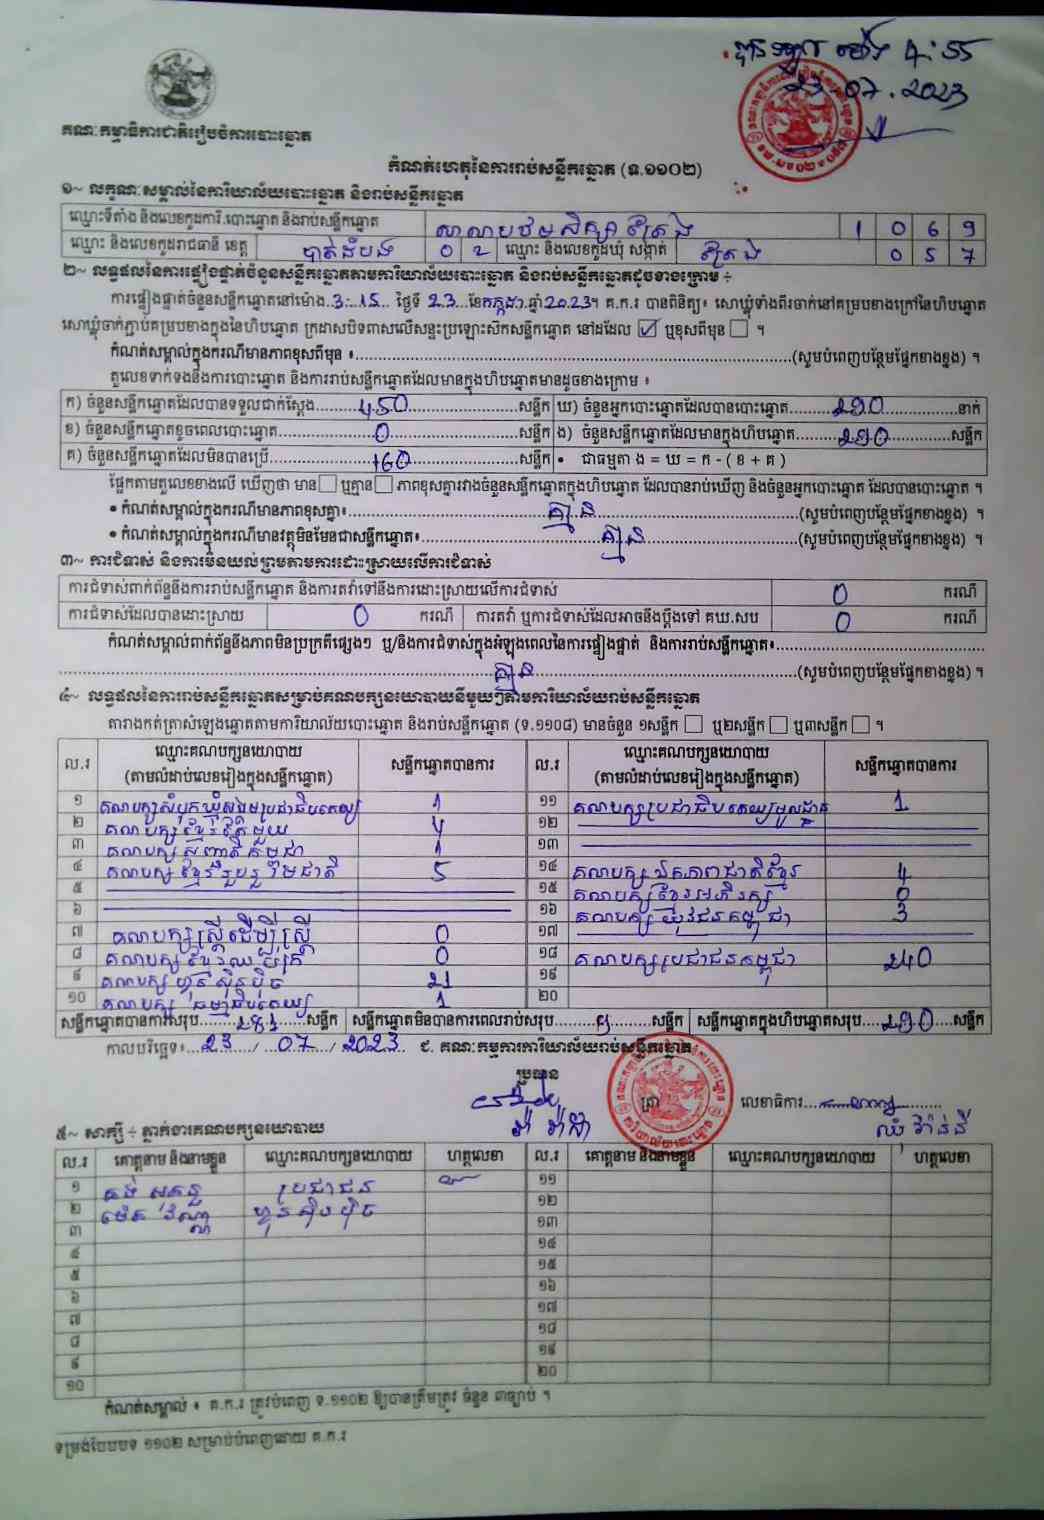 បានទទួល ម៉ោង 4:55
23.07.2023
គណៈកម្មាធិការជាតិរៀបចំការបោះឆ្នោត
កំណត់ហេតុនៃការរាប់សន្លឹកឆ្នោត (ទ.១១០២)
១~ លក្ខណៈសម្គាល់នៃការិយាល័យបោះឆ្នោត និងរាប់សន្លឹកឆ្នោត
ឈ្មោះទីតាំង និងលេខកូដការិ.បោះឆ្នោត និងរាប់សន្លឹកឆ្នោត សាលាបឋមសិក្សា ត្រែង 1 0 6 9
ឈ្មោះ និងលេខកូដរាជធានី ខេត្ត បាត់ដំបង 0 2 ឈ្មោះ និងលេខកូដឃុំ សង្កាត់ ត្រែង 0 5 7
២~ លទ្ធផលនៃការផ្ទៀងផ្ទាត់ចំនួនសន្លឹកឆ្នោតតាមការិយាល័យបោះឆ្នោត និងរាប់សន្លឹកឆ្នោតដូចខាងក្រោម ÷
ការផ្ទៀងផ្ទាត់ចំនួនសន្លឹកឆ្នោតនៅម៉ោង..3:15.. ថ្ងៃទី..23...ខែកក្កដា.ឆ្នាំ2023។ គ.ក.រ បានពិនិត្យ៖ សោឃ្លុំទាំងពីរចាក់នៅគម្របខាងក្រៅនៃហិបឆ្នោត
សោឃ្លុំចាក់ភ្ជាប់គម្របខាងក្នុងនៃហិបឆ្នោត ក្រដាសបិទពាសលើសន្ទះប្រឡោះសិកសន្លឹកឆ្នោត នៅដដែល ☑ ឬខុសពីមុន ☐ ។
កំណត់សម្គាល់ក្នុងករណីមានភាពខុសពីមុន ៖........(សូមបំពេញបន្ថែមផ្នែកខាងខ្នង) ។
តួលេខទាក់ទងនឹងការបោះឆ្នោត និងការរាប់សន្លឹកឆ្នោតដែលមានក្នុងហិបឆ្នោតមានដូចខាងក្រោម ៖
ក) ចំនួនសន្លឹកឆ្នោតដែលបានទទួលជាក់ស្តែង........450........សន្លឹក ឃ) ចំនួនអ្នកបោះឆ្នោតដែលបានបោះឆ្នោត........290........នាក់
ខ) ចំនួនសន្លឹកឆ្នោតខូចពេលបោះឆ្នោត........0........សន្លឹក ង) ចំនួនសន្លឹកឆ្នោតដែលមានក្នុងហិបឆ្នោត........290........សន្លឹក
គ) ចំនួនសន្លឹកឆ្នោតដែលមិនបានប្រើ........160........សន្លឹក • ជាធម្មតា ង = ឃ = ក - ( ខ + គ )
ផ្អែកតាមតួលេខខាងលើ ឃើញថា មាន ☐ ឬគ្មាន ☐ ភាពខុសគ្នារវាងចំនួនសន្លឹកឆ្នោតក្នុងហិបឆ្នោត ដែលបានរាប់ឃើញ និងចំនួនអ្នកបោះឆ្នោត ដែលបានបោះឆ្នោត ។
• កំណត់សម្គាល់ក្នុងករណីមានភាពខុសគ្នា៖........គ្មាន........(សូមបំពេញបន្ថែមផ្នែកខាងខ្នង) ។
• កំណត់សម្គាល់ក្នុងករណីមានវត្ថុមិនមែនជាសន្លឹកឆ្នោត៖........គ្មាន........(សូមបំពេញបន្ថែមផ្នែកខាងខ្នង) ។
៣~ ការជំទាស់ និងការមិនយល់ព្រមតាមការដោះស្រាយលើការជំទាស់
ការជំទាស់ពាក់ព័ន្ធនឹងការរាប់សន្លឹកឆ្នោត និងការតវ៉ាទៅនឹងការដោះស្រាយលើការជំទាស់ 0 ករណី
ការជំទាស់ដែលបានដោះស្រាយ 0 ករណី ការតវ៉ា ឬការជំទាស់ដែលអាចនឹងប្តឹងទៅ គឃ.សប 0 ករណី
កំណត់សម្គាល់ពាក់ព័ន្ធនឹងភាពមិនប្រក្រតីផ្សេងៗ ឬ/និងការជំទាស់ក្នុងអំឡុងពេលនៃការផ្ទៀងផ្ទាត់ និងការរាប់សន្លឹកឆ្នោត៖........
........គ្មាន........(សូមបំពេញបន្ថែមផ្នែកខាងខ្នង) ។
៤~ លទ្ធផលនៃការរាប់សន្លឹកឆ្នោតសម្រាប់គណបក្សនយោបាយនីមួយៗតាមការិយាល័យរាប់សន្លឹកឆ្នោត
តារាងកត់ត្រាសំឡេងឆ្នោតតាមការិយាល័យបោះឆ្នោត និងរាប់សន្លឹកឆ្នោត (ទ.១១០៨) មានចំនួន ១សន្លឹក ☐ ឬ២សន្លឹក ☐ ឬ៣សន្លឹក ☐ ។
ល.រ ឈ្មោះគណបក្សនយោបាយ (តាមលំដាប់លេខរៀងក្នុងសន្លឹកឆ្នោត) សន្លឹកឆ្នោតបានការ ល.រ ឈ្មោះគណបក្សនយោបាយ (តាមលំដាប់លេខរៀងក្នុងសន្លឹកឆ្នោត) សន្លឹកឆ្នោតបានការ
១ គណបក្សសំបុកឃ្មុំសង្គមប្រជាធិបតេយ្យ 1 ១១ គណបក្សប្រជាធិបតេយ្យមូលដ្ឋាន 1
២ គណបក្សខ្មែរតែមួយ 4 ១២
៣ គណបក្សសញ្ជាតិកម្ពុជា 1 ១៣
៤ គណបក្សខ្មែររួបរួមជាតិ 5 ១៤ គណបក្សឯកភាពជាតិខ្មែរ 4
៥ ១៥ គណបក្សខ្មែរអភិរក្ស 0
៦ ១៦ គណបក្សយុវជនកម្ពុជា 3
៧ គណបក្សស្ត្រីដើម្បីស្ត្រី 0 ១៧
៨ គណបក្សខ្មែរឈប់ក្រ 0 ១៨ គណបក្សប្រជាជនកម្ពុជា 240
៩ គណបក្សហ្វ៊ុនស៊ិនប៉ិច 21 ១៩
១០ គណបក្សធម្មាធិបតេយ្យ 1 ២០
សន្លឹកឆ្នោតបានការសរុប........281........សន្លឹក សន្លឹកឆ្នោតមិនបានការពេលរាប់សរុប........9........សន្លឹក សន្លឹកឆ្នោតក្នុងហិបឆ្នោតសរុប...290...សន្លឹក
កាលបរិច្ឆេទ៖...23..../....07..../..2023.. ជ. គណៈកម្មការការិយាល័យរាប់សន្លឹកឆ្នោត
ប្រធាន
ត្រា លេខាធិការ........
ឈុំ វ៉ាន់នី
៥~ សាក្សី ÷ ភ្នាក់ងារគណបក្សនយោបាយ
ល.រ គោត្តនាម និងនាមខ្លួន ឈ្មោះគណបក្សនយោបាយ ហត្ថលេខា ល.រ គោត្តនាម និងនាមខ្លួន ឈ្មោះគណបក្សនយោបាយ ហត្ថលេខា
១ ប្រជាជន ១១
២ ហ្វ៊ុនស៊ិនប៉ិច ១២
៣ ១៣
៤ ១៤
៥ ១៥
៦ ១៦
៧ ១៧
៨ ១៨
៩ ១៩
១០ ២០
កំណត់សម្គាល់ ៖ គ.ក.រ ត្រូវបំពេញ ទ.១១០២ ឱ្យបានត្រឹមត្រូវ ចំនួន ៣ច្បាប់ ។
ទម្រង់បែបបទ ១១០២ សម្រាប់បំពេញដោយ គ.ក.រ